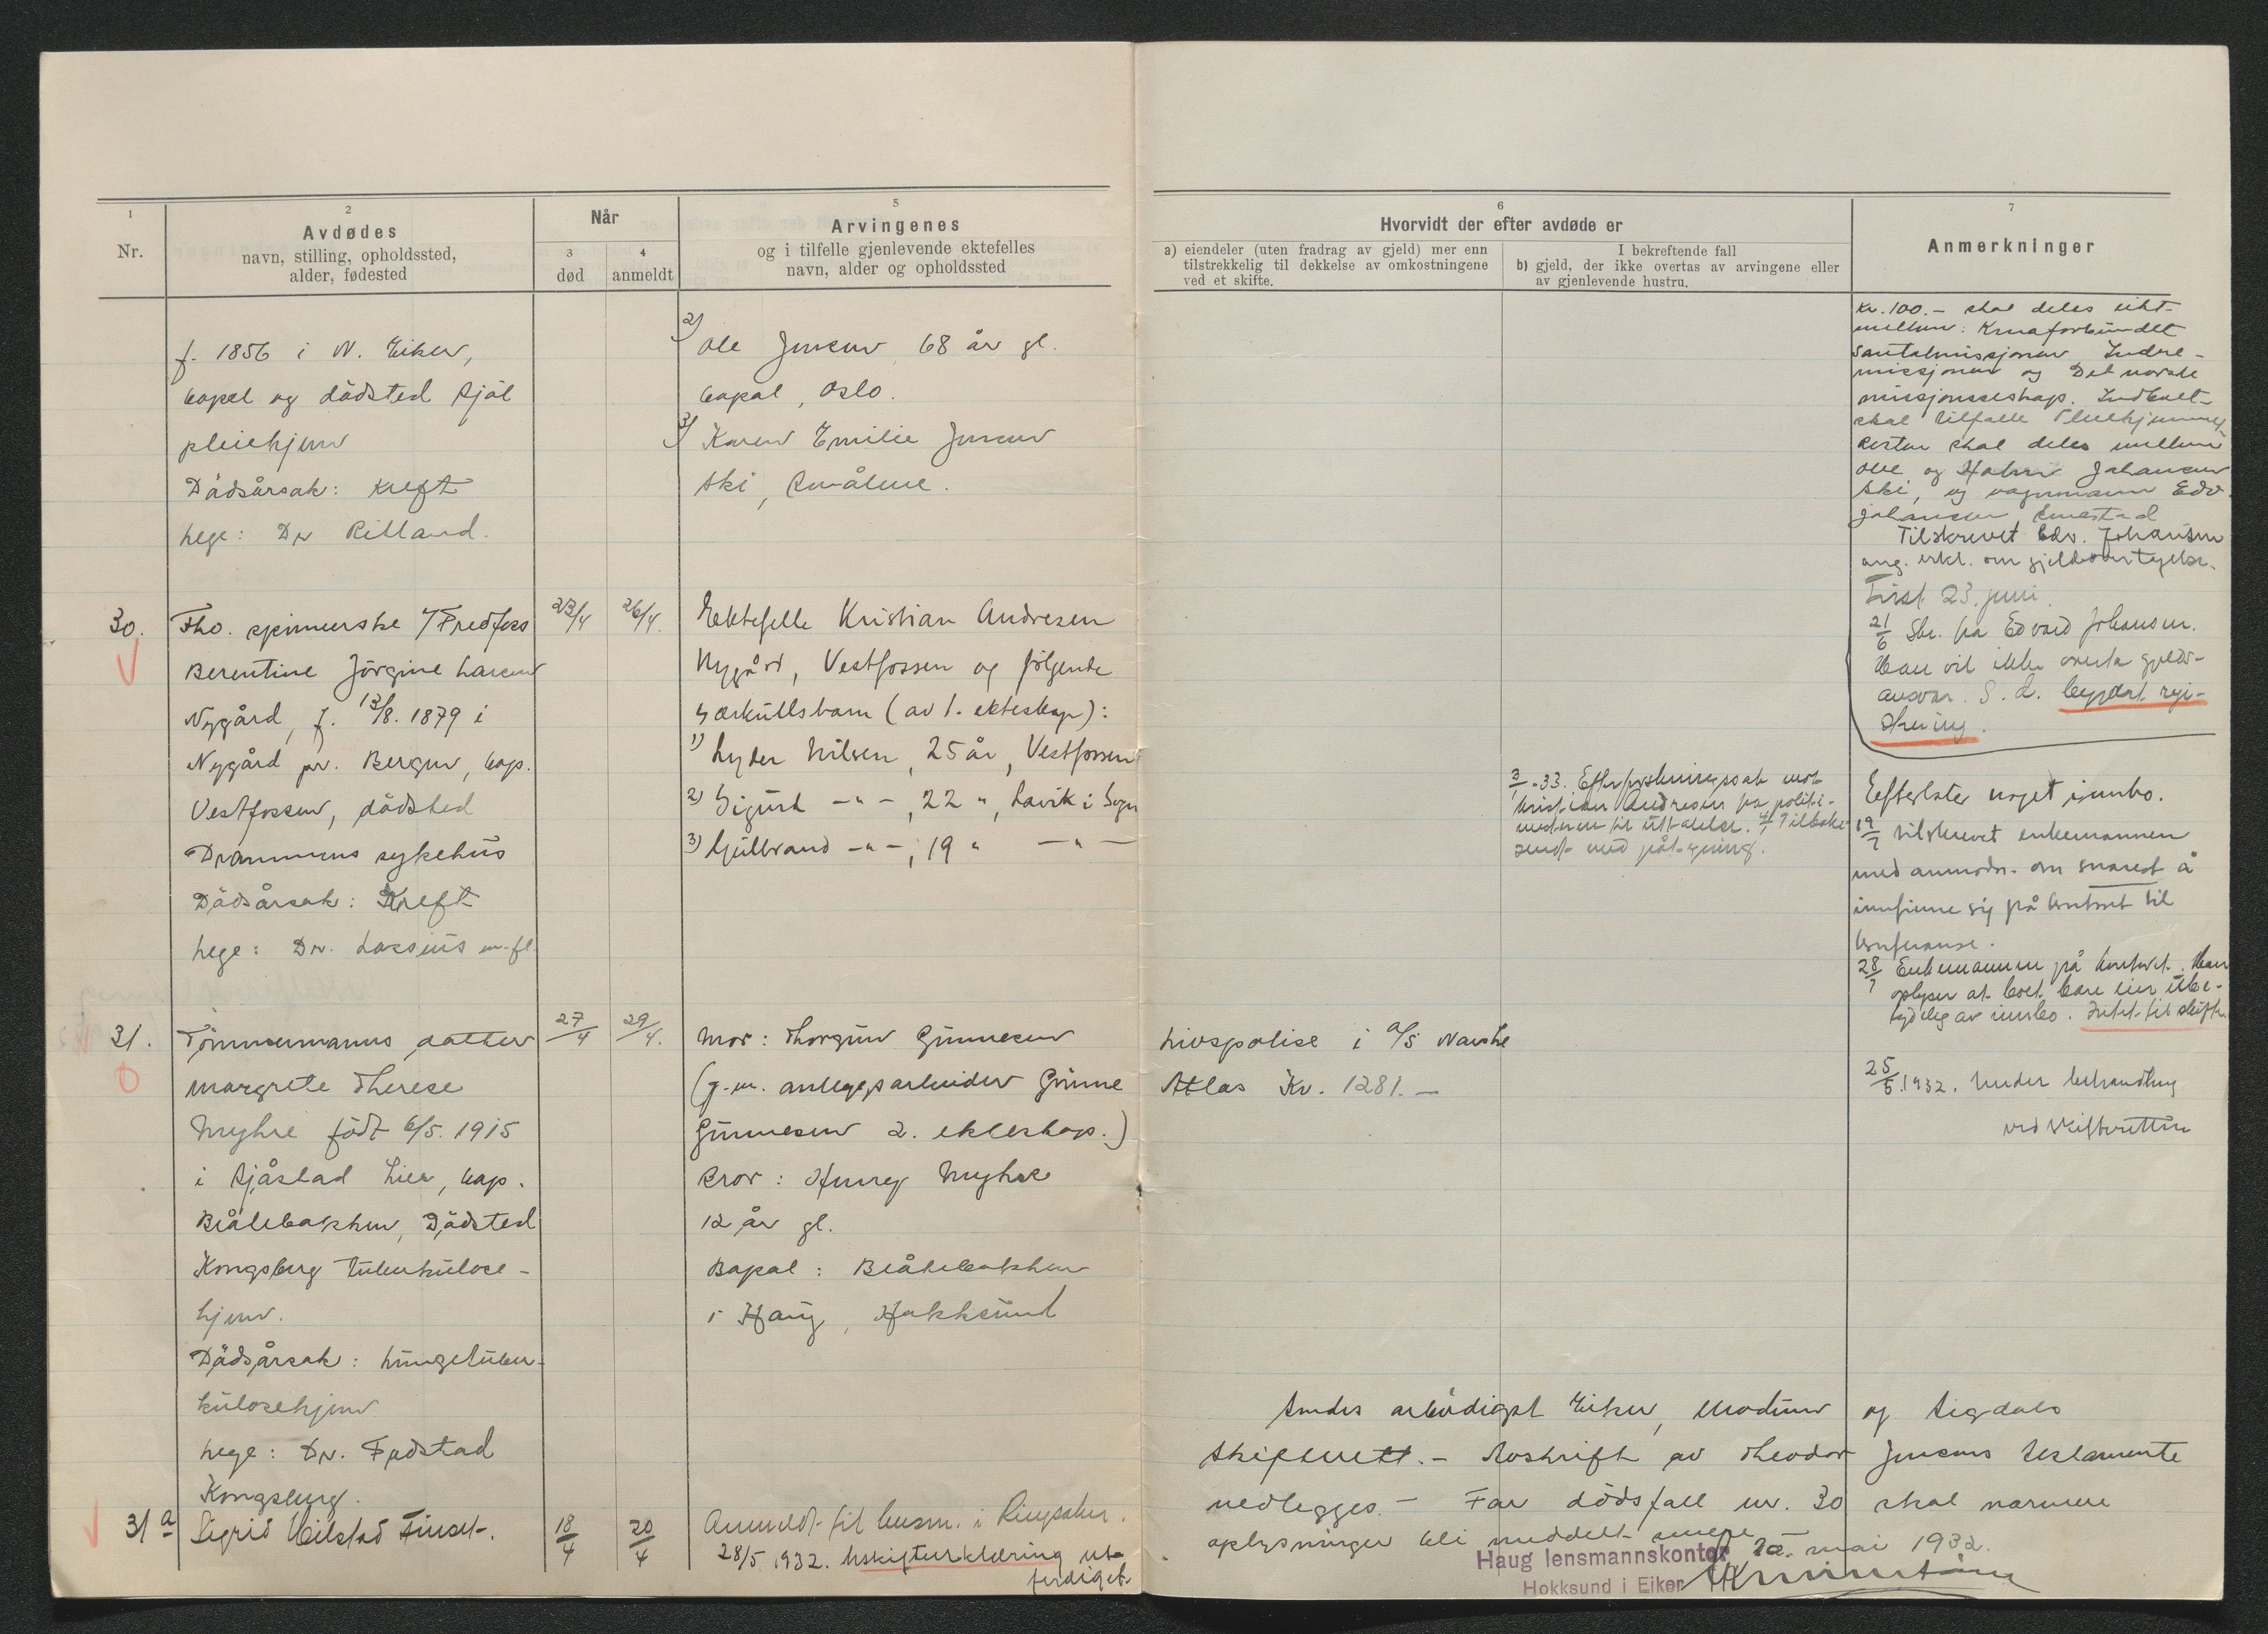 1
Nr.
2
Avdødes
navn, stilling, opholdssted,
alder, fødested
Når
3
død
4
anmeldt
5
Arvingenes
og i tilfelle gjenlevende ektefelles
navn, alder og opholdssted
f. 1856 i N. Eiker,
bopel og dødsted
pleiehjem
Dødsårsak: Kreft
Lege: Dr Rilland.
2) Ole Jensen 68 år gl.
bopel, Oslo.
3) Karen Emilie Jensen
Ski, Småålene.
30.
Fhv. spinnerske v/Fredfoss
Berentine Jörgine Larsen
Nygård, f. 13/8. 1879 i
Nygård pr. Bergen, bop.
Vestfossen, dödsted
Drammens sykehus
Dödsårsak: Kreft
Lege: Dr. Lossius m.fl.
23/4
26/4.
Ektefelle Kristian Andresen
Nygård, Vestfossen og følgende
særkullsbarn (av 1. ekteskap):
1) Lyder Nilsen, 25 år, Vestfossen
2) Sigurd -"-, 22 ", Lavik i Sogn
3) Gulbrand -"-, 19 " -"-
31.
Tömmermanns datter
Margrete Therese
Myhre födt 6/5. 1915
i Sjåstad Lier, bop.
Blålebakken, Dödsted
Kongsberg tuberkulose-
hjem.
Dödsårsak: Lungetuber-
kulosehjem
Lege: Dr. Fodstad
Kongsberg.
27/4
29/4.
Mor: Thorgun Gunnesen
(g.m. anleggsarbeider Gunne
Gunnesen 2. ekteskap.)
Bror: Henry Myhre
12 år gl.
Bopel: Blålebakken
i Haug, Hokksund
31a
Sigrid Hilstad Finset.
18/4
20/4
Anmeldt til lensm. i Ringsaker.
28/5 1932. Uskifteerklæring ut-
ferdiget.
6
Hvorvidt der efter avdøde er
a) eiendeler (uten fradrag av gjeld) mer enn
tilstrekkelig til dekkelse av omkostningene
ved et skifte.
I bekreftende fall
b) gjeld, der ikke overtas av arvingene eller
av gjenlevende hustru.
7
Anmerkninger
Kr. 100.- skal deles likt
mellem: Kinaforbundet
Santalmissjonen, Indre-
missjonen og Det norske
missjonsselskap. Indboet
skal tilfalle Pleiehjemmet
Resten skal deles mellem
Ole og Johansen
Ski, og vognmann Edv.
Johansen
Tilskrevet Edv. Johansen
ang. erkl. om gjeldsovertagelse.
Frist 23. juni.
21/6 Skr. fra Edvard Johansen.
Han vil ikke overta gjelds-
ansvar. S. d. begjært regi-
strering.
3/1-33. Efterforskningssak mot
Kristian Andresen fra politi-
mesteren til uttalelse. 4/1 Tilbake-
sendt med påtegning.
Efterlater noget innbo.
19/7 tilskrevet enkemannen
med anmodn. om snarest å
innfinne sig på kontoret til
konferanse.
28/7 Enkemannen på kontoret. Han
oplyser at boet bare eier ube-
tydelig av innbo. Intet til skifte.
Livspolise i A/S Norske
Atlas Kr. 1281.-
25/5.1932. Under behandling
ved skifteretten
Sendes ærbödigst Eiker, Modum og Sigdals
Skifterett.- Avskrift av Theodor Jensens testamente
vedlegges.- For dödsfall nr. 30 skal nærmere
oplysninger bli meddelt senere
Haug lensmannskontor 10. mai 1932.
Hokksund i Eiker